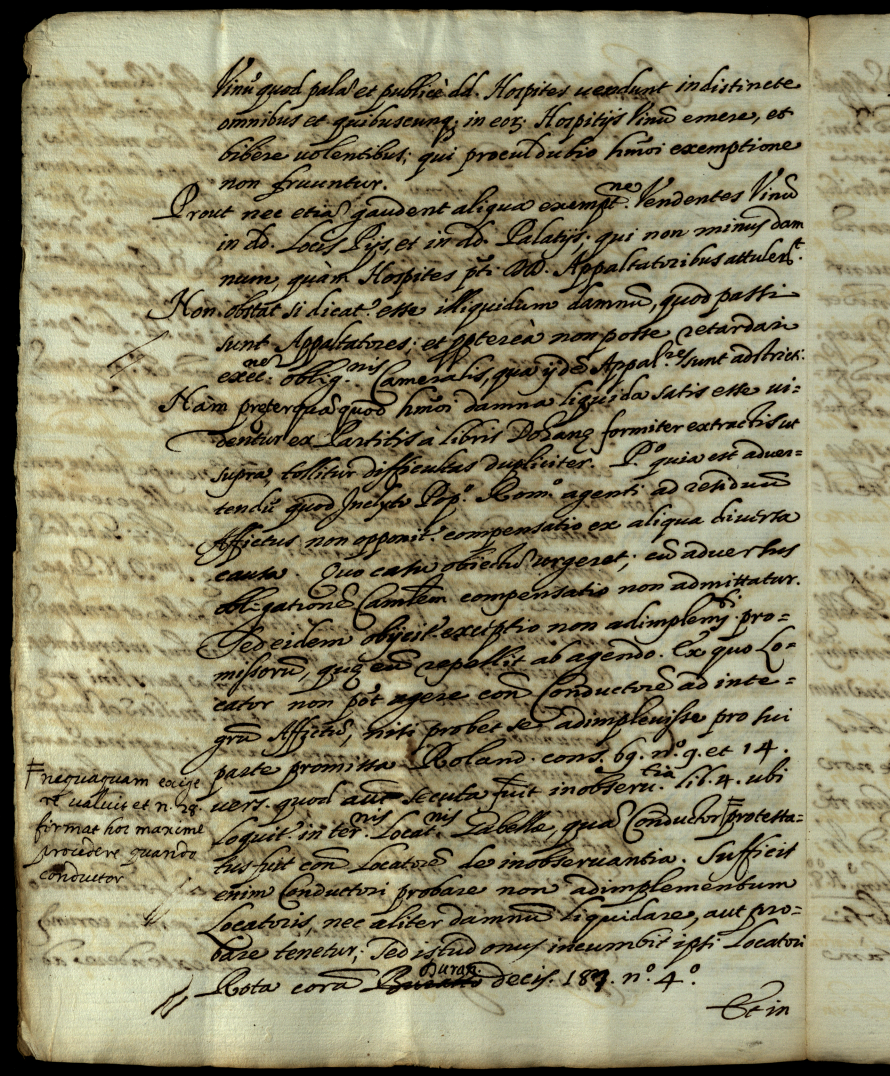 Vinũ quod palã et publicè dd. Hospites uendunt indistincte
omnibus et quibuscunq; in eor; Hospitijs Vinũ emere, et
bibere uolentibus; qui proculdubio hmõi exemptione
non fruuntur.
Prout nec etiã gaudent aliqua exempt.ne Vendentes Vinũ
in dd. Locis Pijs, et in dd. Palatijs; qui non minus dam
num, quam Hospites pti. DD. Appaltatoribus attuler.t
Non obstat si dicat.r esse illiquidum damnũ, quod passi
sunt Appaltatores; et ppterèa non posse retardari
exec.nem oblig.nis Cameralis, qua ijdẽ Appal.res sunt adstricti.
Nàm preterquã quod hmõi damna liquida satis esse ui-
dentur ex Partitis à libris Dohanę formiter extractis ut
supra, tollitur difficultas dupliciter. P.o quia est aduer-
tendũ quod Inclyto Pop.o Rom.o agenti ad residuũ
Affictus non opponit.r compensatio ex aliqua diuersa
causa. Quo casu obiectũ urgeret; cũ aduersus
obligationẽ Camlem compensatio non admittatur.
Sed eidem obijcit.r exceptio non adimplem.ti pro-
missorũ, quę eũ repellit ab agendo. Ex quo Lo-
cator non põt agere con Conductorẽ ad inte-
grũ Affictũ, nisi probet se adimpleuisse pro sui
parte promissa Roland. cons. 69. n.o 9. et 14.
uers. quod aũt secuta fuit inobseru.tia lib. 4. ubi
loquit.r in ter.nis Locat.nis Gabellæ, quã Conductor protesta-
F nequaquam exige
re ualuit et n. 28.
firmat hoc maxime
procedere quando
conductor
tus fuit con Locatorẽ de inobseruantia. Sufficit
enim Conductori probare non adimplementum
Locatoris, nec aliter damnũ liquidare, aut pro-
bare tenetur; Sed istud onus incumbit ipsi Locatori
Rota corã Duran. decis. 183. n.o 4.o
Et in